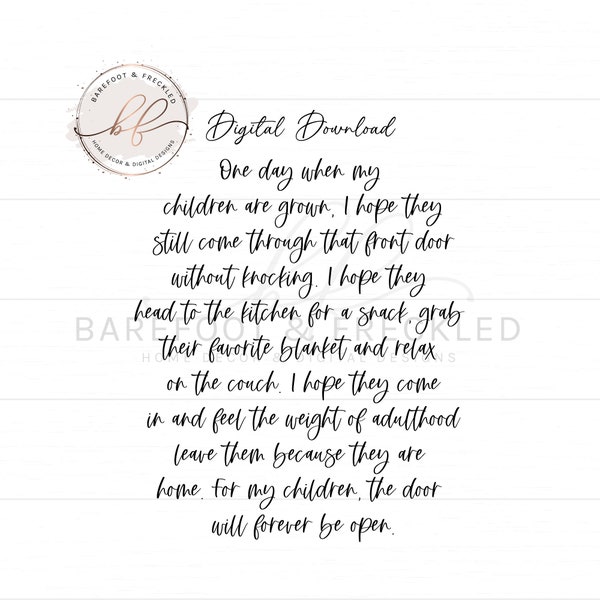 BAREFOOT & FRECKLED
bf
HOME DECOR & DIGITAL DESIGNS
Digital Download
One day when my
children are grown, I hope they
still come through that front door
without knocking. I hope they
head to the kitchen for a snack, grab
BAREFOOT & FRECKLED
their favorite blanket and relax
HOME DECOR & DIGITAL DESIGNS
on the couch. I hope they come
in and feel the weight of adulthood
leave them because they are
home. For my children, the door
will forever be open.